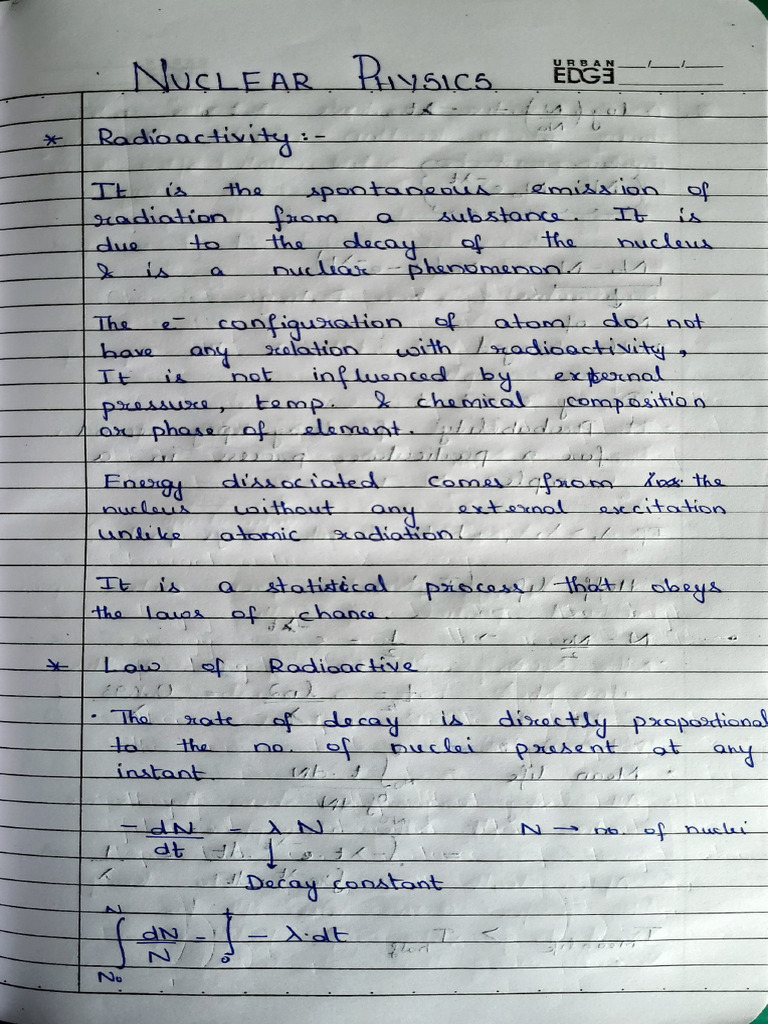 NUCLEAR PHYSICS
URBAN
EDGE
* Radioactivity :-
It is the spontaneous emission of
radiation from a substance. It is
due to the decay of the nucleus
& is a nuclear phenomenon.
The e⁻ configuration of atom do not
have any relation with radioactivity,
It is not influenced by external
pressure, temp. & chemical composition
or phase of element.
Energy dissociated comes from the
nucleus without any external excitation
unlike atomic radiation.
It is a statistical process that obeys
the laws of chance.
* Law of Radioactive
· The rate of decay is directly proportional
to the no. of nuclei present at any
instant.
- dN/dt = λ N N → no. of nuclei
↓
Decay constant
∫_{N₀}^{N} dN/N = ∫_{0}^{t} - λ·dt